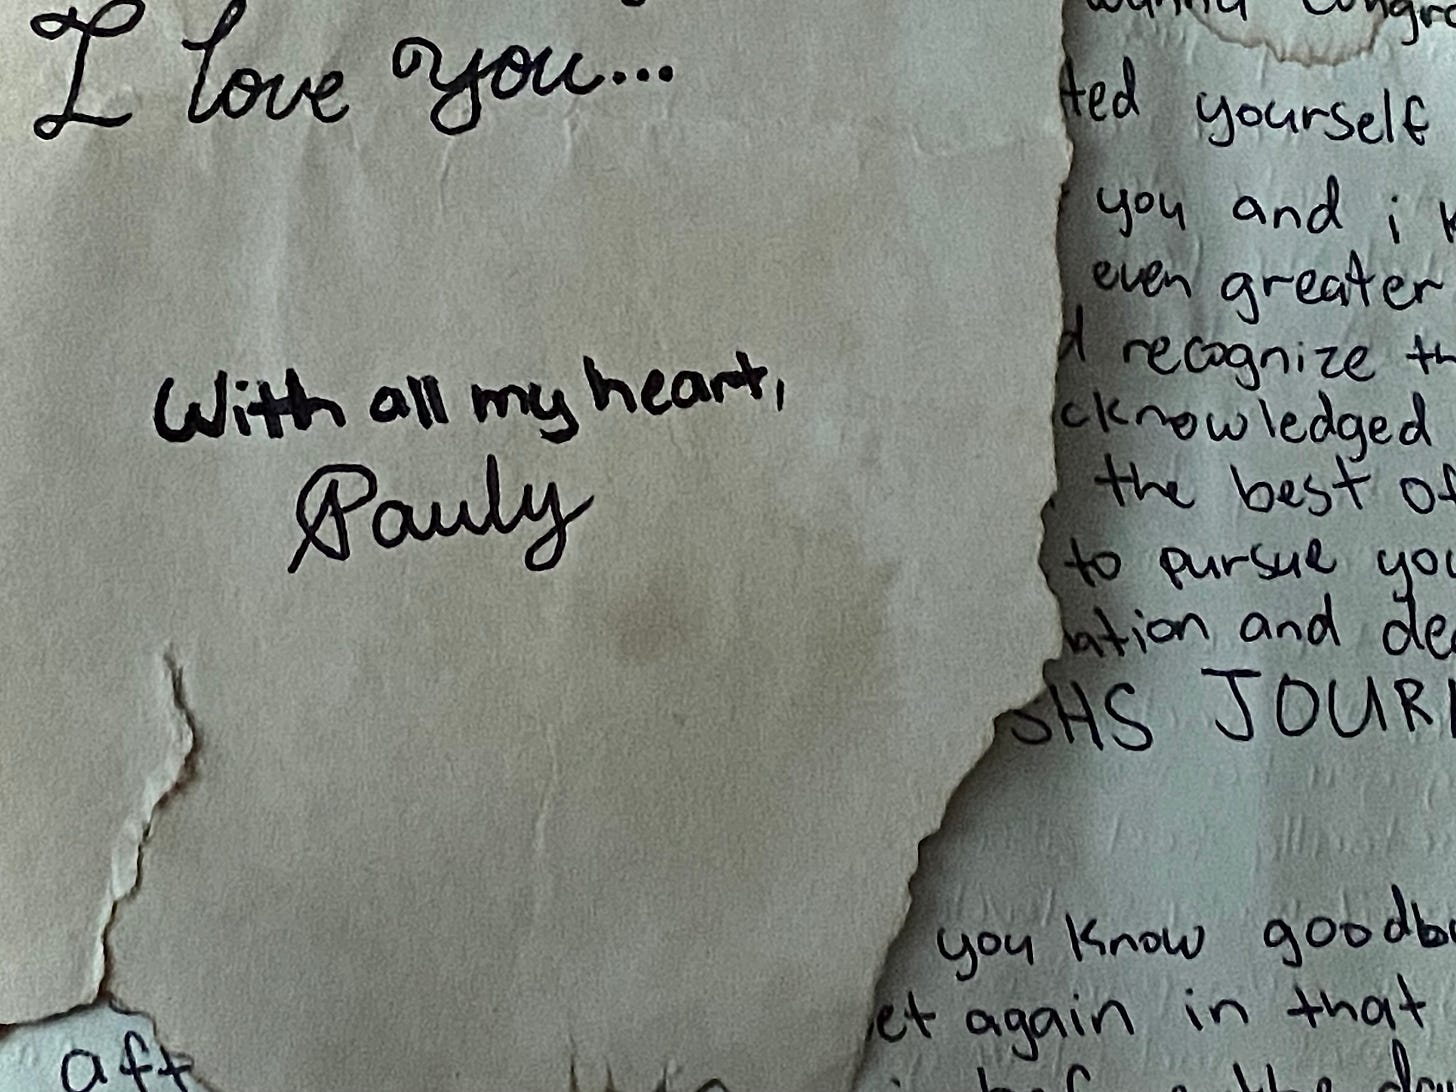 I love you...
With all my heart,
Pauly
ted yourself
you and i
even greater
recognize
cknowledged
the best of
to pursue you
ation and de
SHS JOUR
you know goodb
et again in that
aft